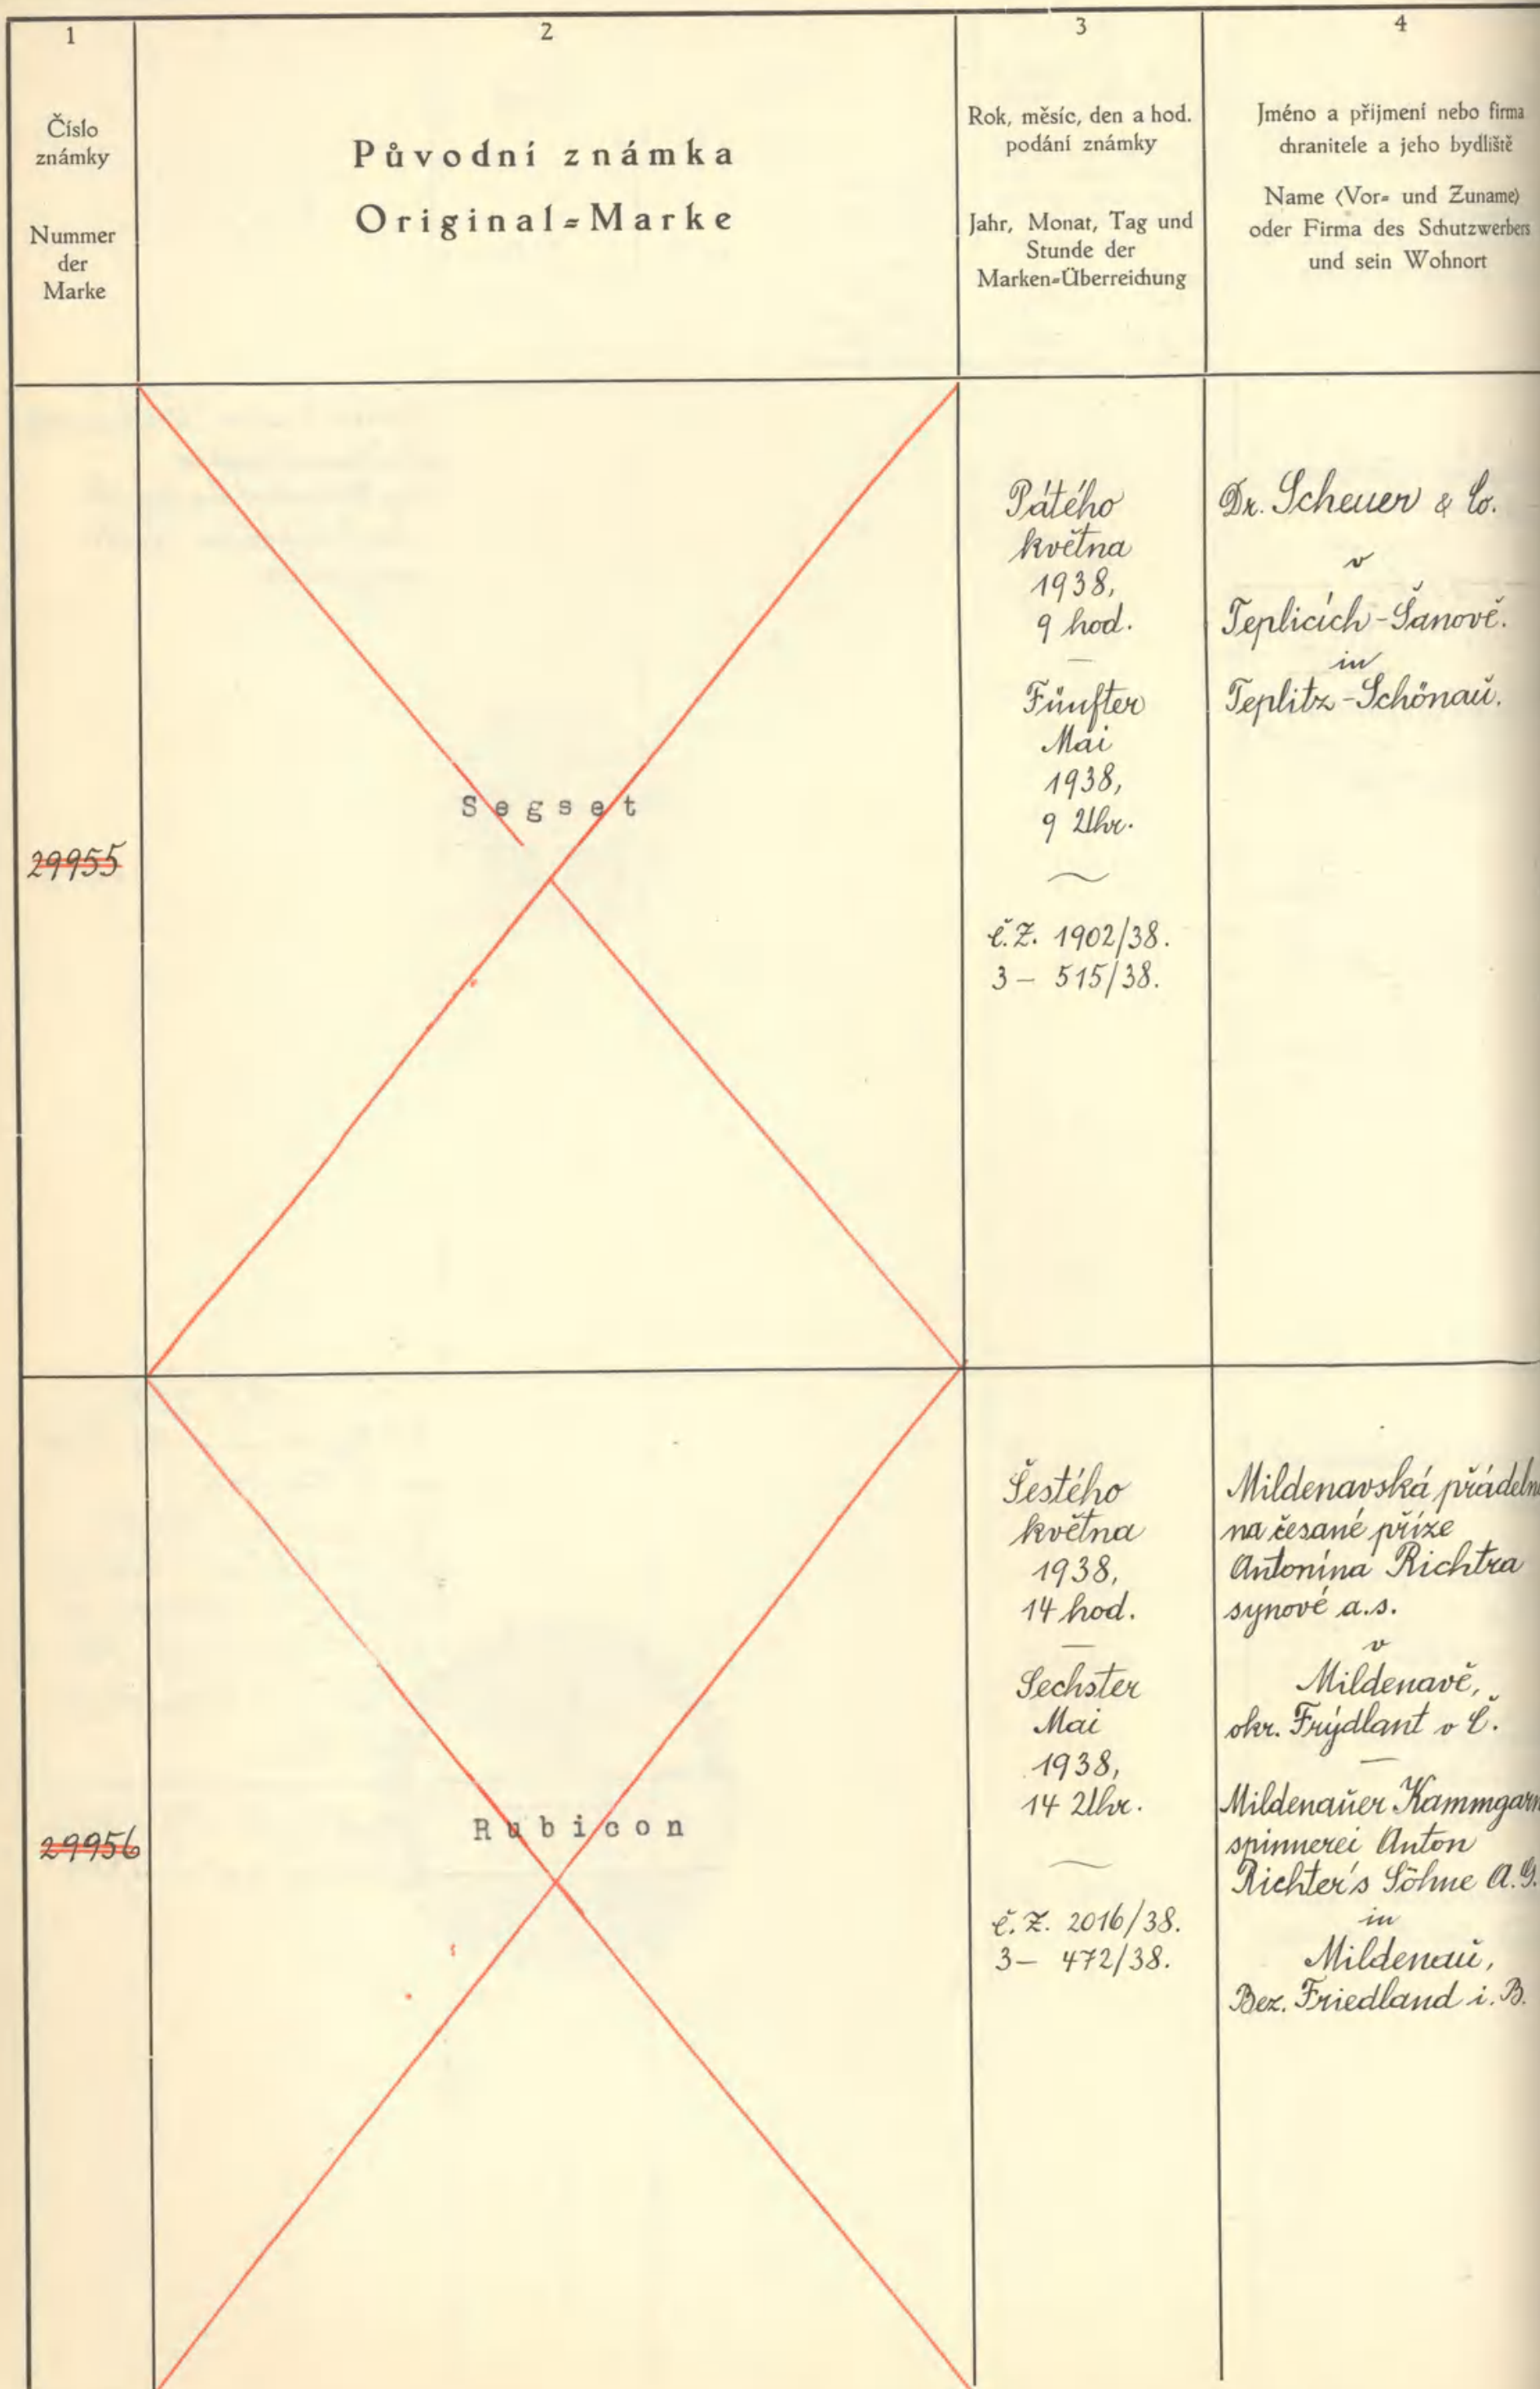 1
Číslo
známky
Nummer
der
Marke
2
Původní známka
Original=Marke
3
Rok, měsíc, den a hod.
podání známky
Jahr, Monat, Tag und
Stunde der
Marken=Überreichung
4
Jméno a přijmení nebo firma
chranitele a jeho bydliště
Name (Vor= und Zuname)
oder Firma des Schutzwerbers
und sein Wohnort
29955
Segset
Pátého
května
1938,
9 hod.
—
Fünfter
Mai
1938,
9 Uhr.
č.Z. 1902/38.
3 – 515/38.
Dr. Scheuer & Co.
v
Teplicích-Šanově.
in
Teplitz-Schönau.
29956
Rubicon
Šestého
května
1938,
14 hod.
—
Sechster
Mai
1938,
14 Uhr.
č.Z. 2016/38.
3 – 472/38.
Mildenavská přádelna
na česané příze
Antonína Richtra
synové a.s.
v
Mildenavě,
okr. Frýdlant v Č.
—
Mildenauer Kammgarn
spinnerei Anton
Richter's Söhne A.G.
in
Mildenau,
Bez. Friedland i. B.